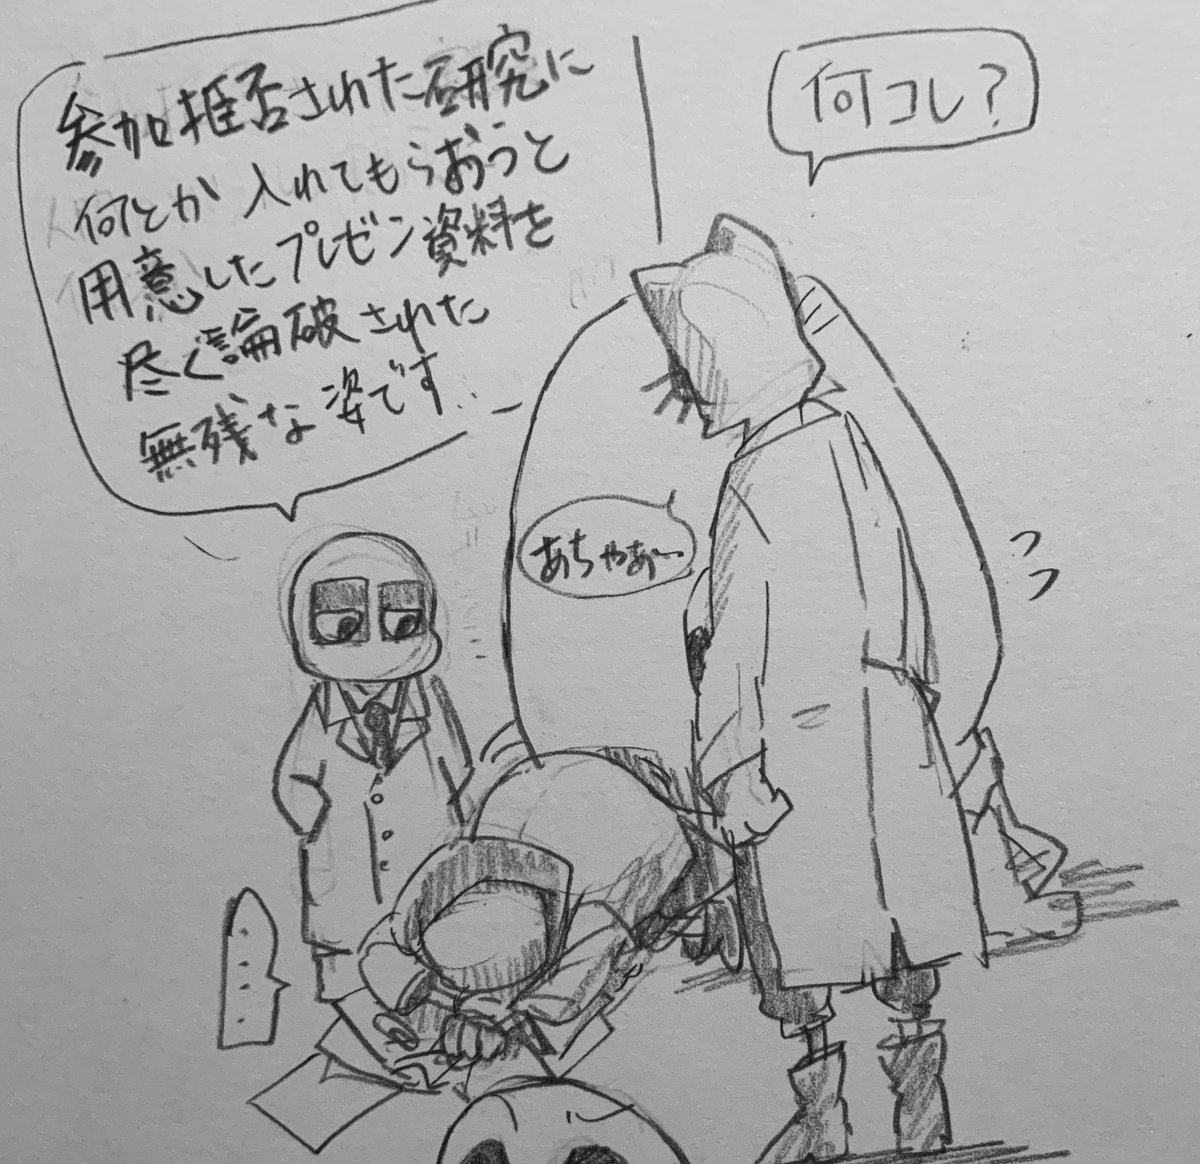 何コレ?
参加拒否された研究に
何とか入れてもらおうと
用意したプレゼン資料を
尽く論破された
無残な姿です…
あちゃあ〜
....